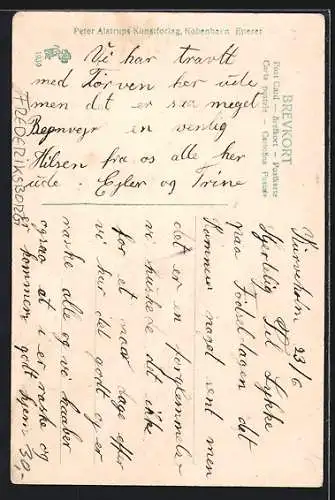 Peter Alstrups Kunstforlag, København Eneret
1809
BREVKORT
Post Card – Brefkort – Postkarte
Carte postale – Cartolina Postale
Vi har travlt
med Törven her ude
men det er saa meget
Regnvejr en venlig
Hilsen fra os alle her
ude. Ejler og Trine
FREDERIKSBORG
23/6
Hjertelig Til Lykke
paa Födselsdagen det
kommer noget sent men
det er en forglemmelse
vi huskede det ikke
for et noar dage efter
vi har det godt og er
raske alle og vi haaber
ogsaa at i er raske og
er kommen godt hjem
30,-